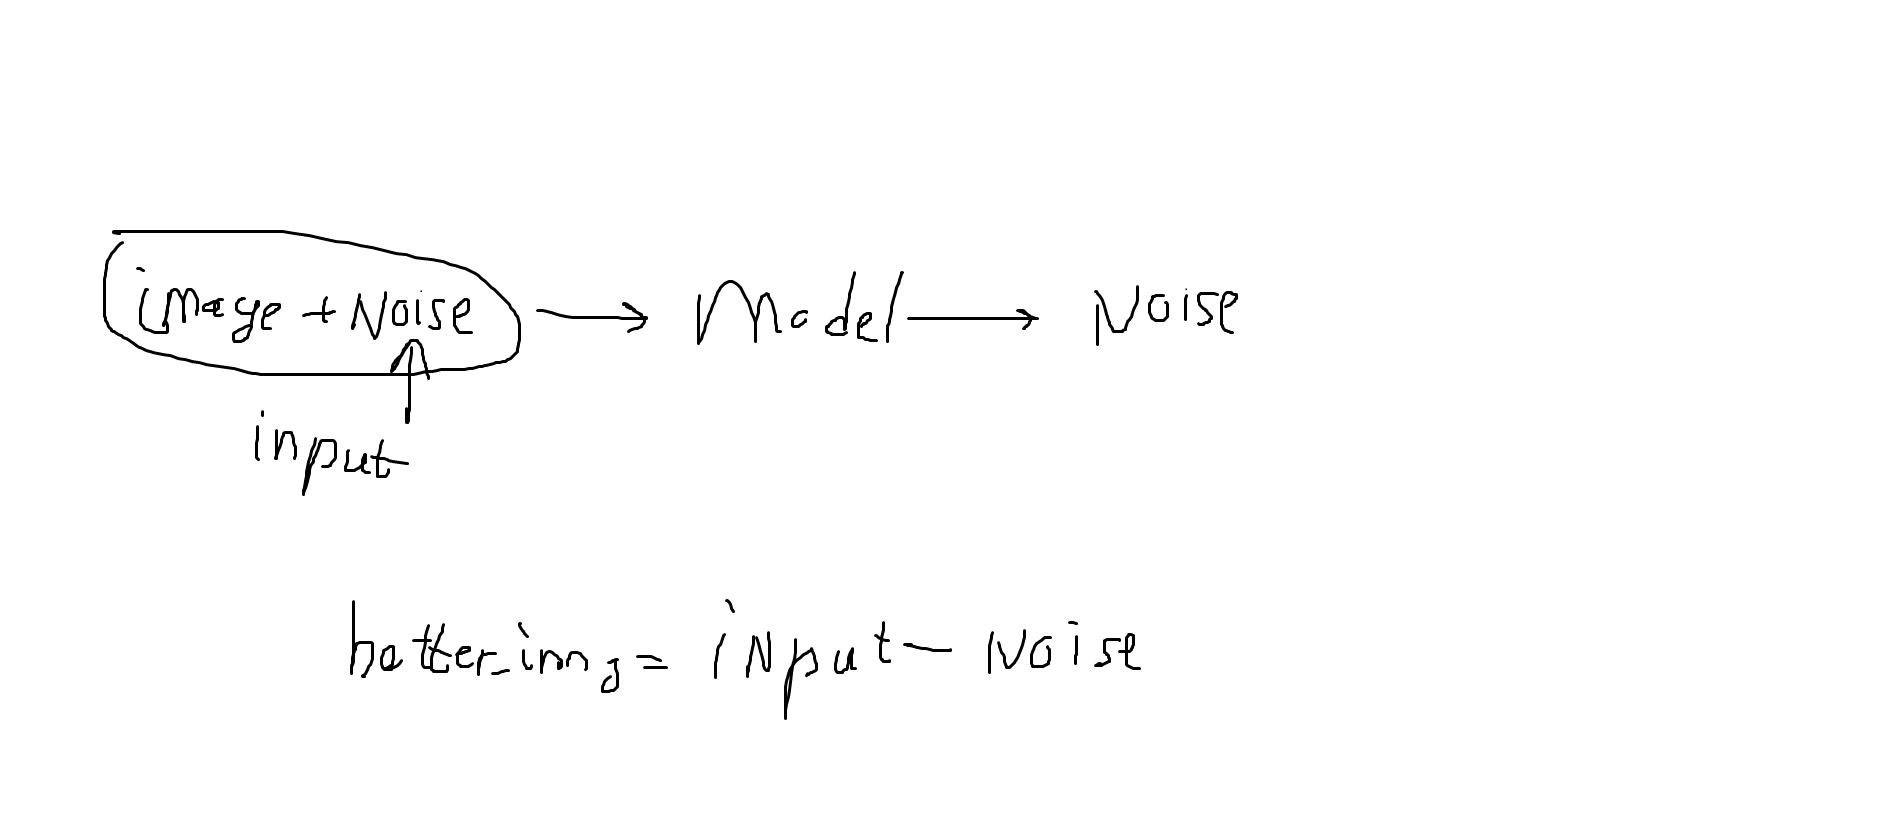 image + Noise → Model → Noise
input
better_img = input - Noise